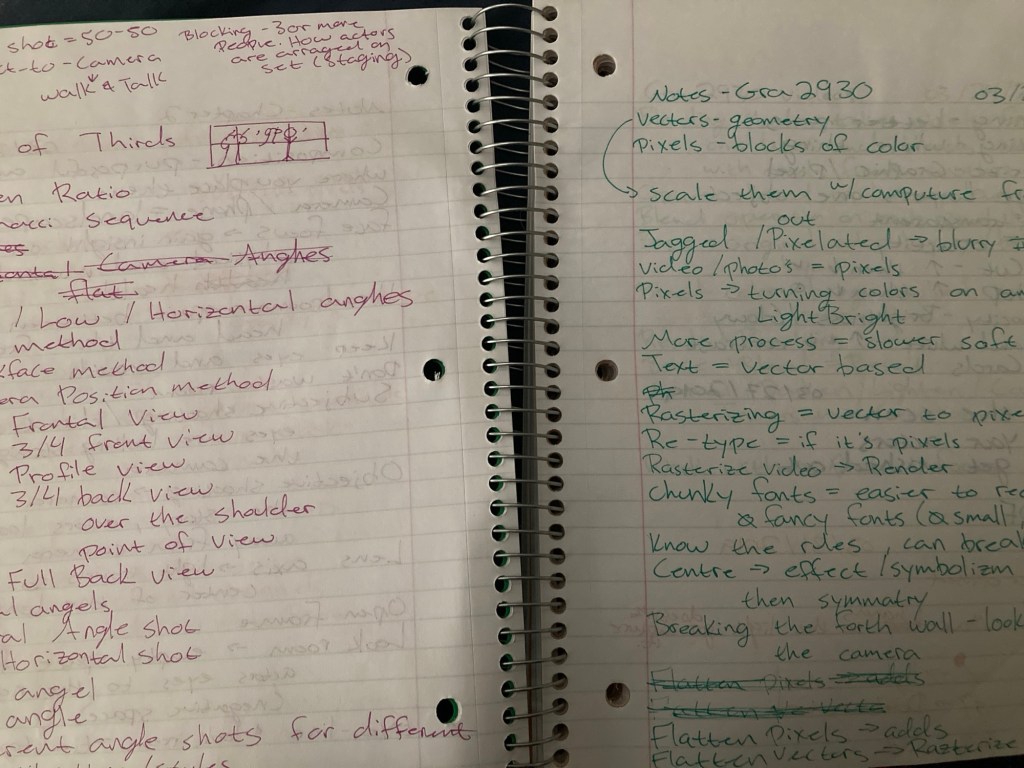 shot = 50-50
ct-to-Camera
walk & Talk
Blocking - 3 or more
People. How actors
are arraged on
set (staging)
of Thirds
en Ratio
nacci sequence
Camera Anghes
flat
/ Low / Horizontal anghes
method
face method
era Position method
Frontal View
3/4 front view
Profile view
3/4 back view
over the shoulder
point of view
Full Back view
al angels
al Angle shot
Horizontal shot
angel
angle
rent angle shots for different
Notes - Gra 2930 03/
vectors - geometry
pixels - blocks of color
scale them w/ computure fr
out
Jagged / Pixelated → blurry
video / photos = pixels
Pixels → turning colors on an
Light Bright
More process = slower soft
Text = vector based
Rasterizing = vector to pixe
Re-type = if it's pixels
Rasterize video → Render
Chunky fonts = easier to rea
& fancy fonts (& small
Know the rules, can break
Centre → effect / symbolizm
then symmatry
Breaking the forth wall - look
the camera
Flatten pixels → adds
Flatten Pixels → adds
Flatten vectors → Rasterize